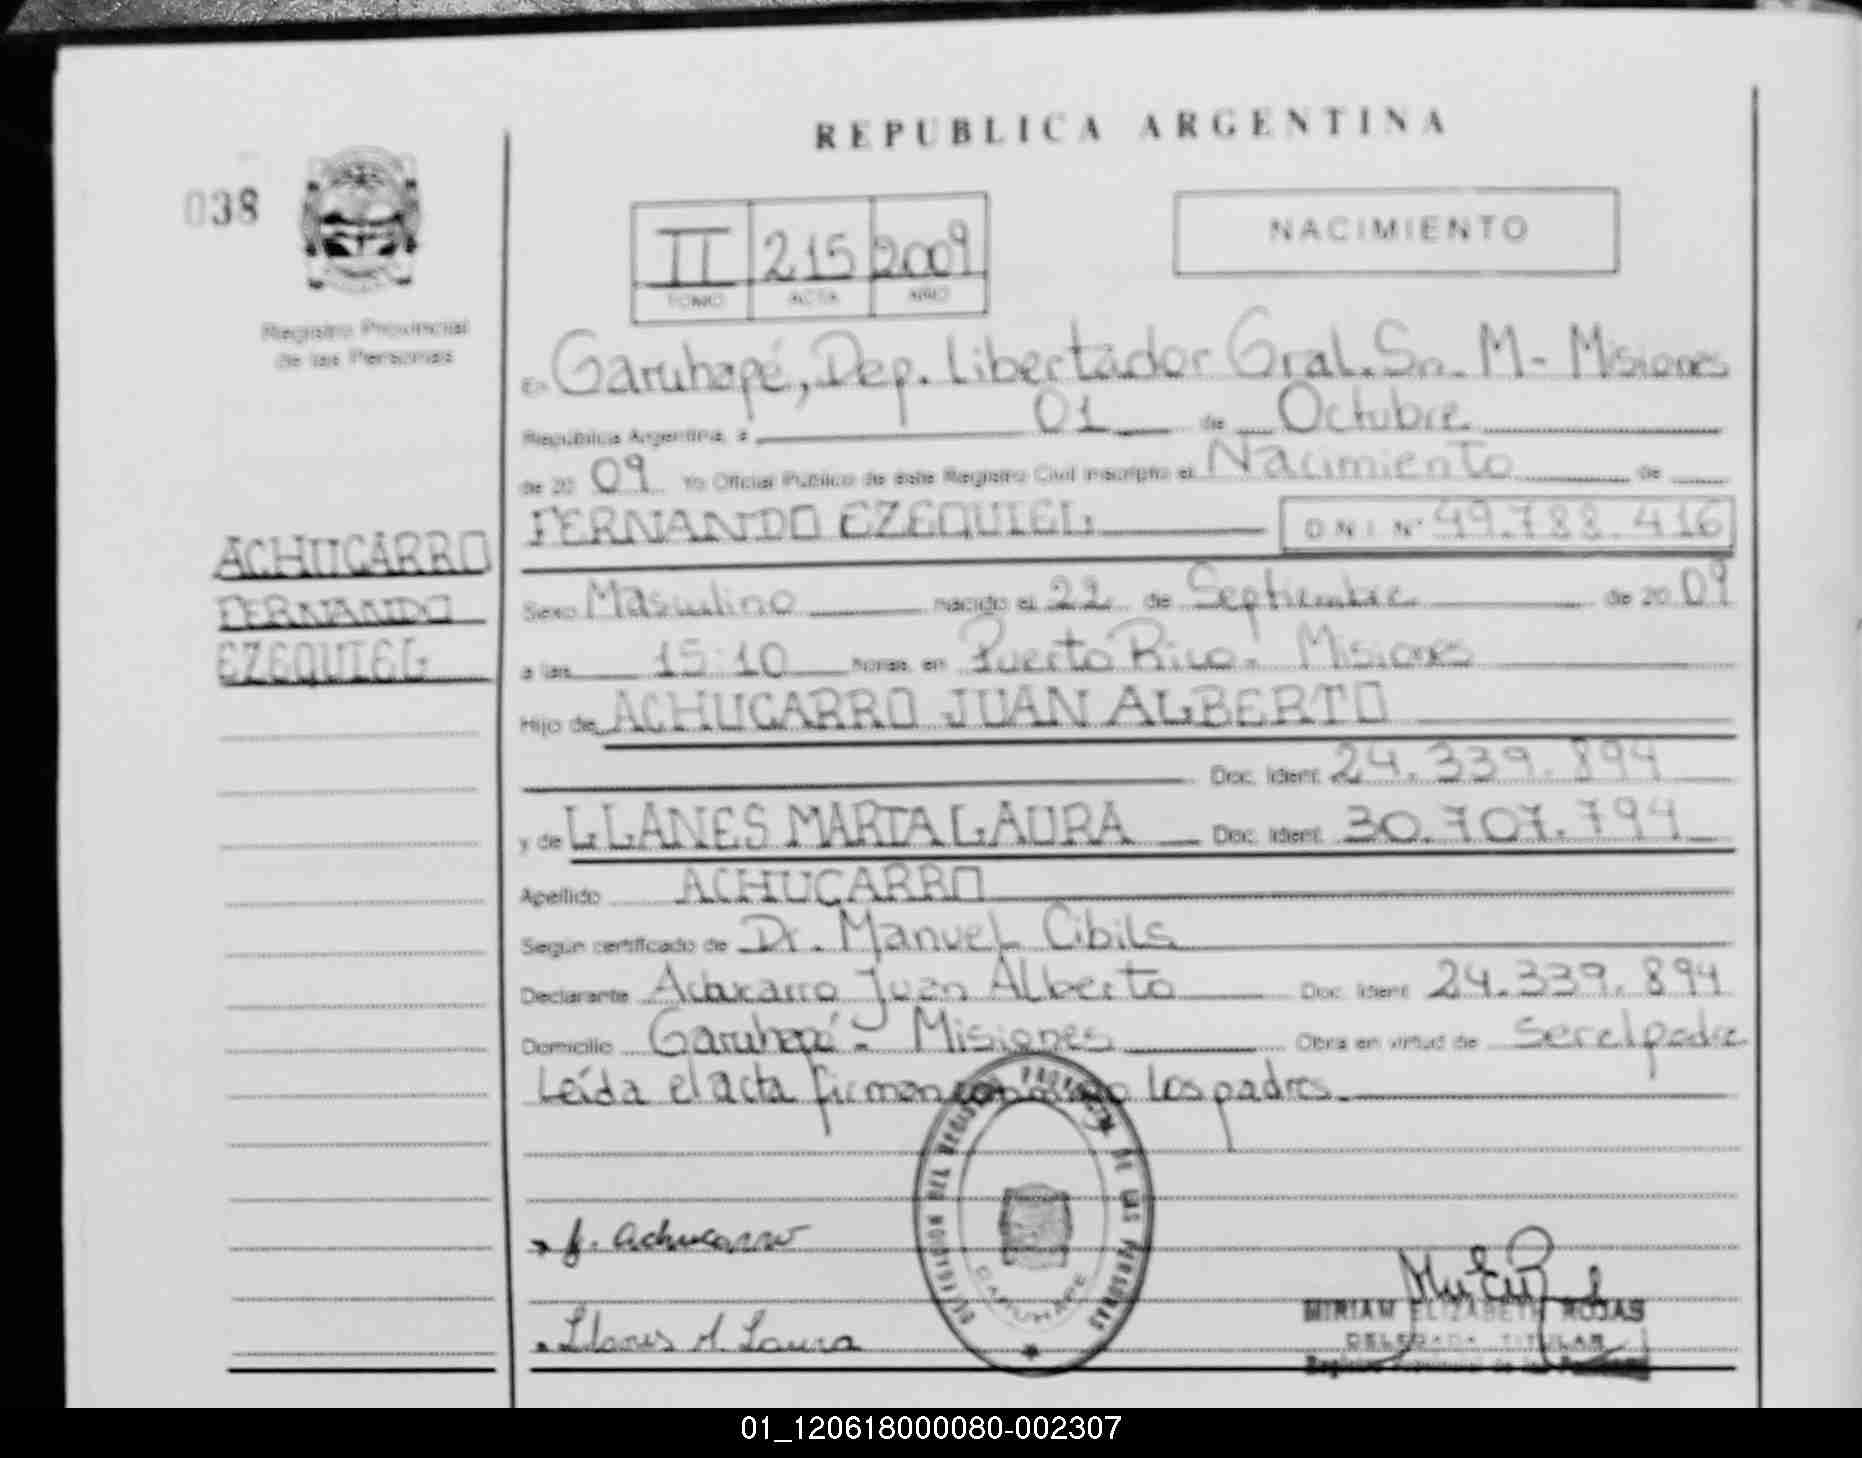 REPUBLICA ARGENTINA
038
II 215 2009
TOMO ACTA AÑO
NACIMIENTO
Registro Provincial
de las Personas
En Garuhapé, Dep. Libertador Gral. Sn. M - Misiones
República Argentina, a 01 de Octubre
de 20 09 Yo Oficial Público de este Registro Civil inscripto el Nacimiento de
FERNANDO EZEQUIEL D N I Nº 49.788.416
ACHUCARRO
FERNANDO
EZEQUIEL
Sexo Masculino nacido el 22 de Septiembre de 20 09
a las 15:10 horas en Puerto Rico - Misiones
Hijo de ACHUCARRO JUAN ALBERTO
Doc. Ident. 24.339.894
y de LLANES MARIA LAURA Doc. Ident. 30.707.794
Apellido ACHUCARRO
Según certificado de Dr. Manuel Cibils
Declarante Achucarro Juan Alberto Doc. Ident. 24.339.894
Domicilio Garuhapé - Misiones Obra en virtud de ser el padre
Leída el acta firman los padres.
DELEGACION DEL REGISTRO PROVINCIAL DE LAS PERSONAS
GARUHAPE
J. Achucarro
Llanes M. Laura
MIRIAM ELIZABETH ROJAS
DELEGADA TITULAR
Registro Provincial de las Personas
01_120618000080-002307